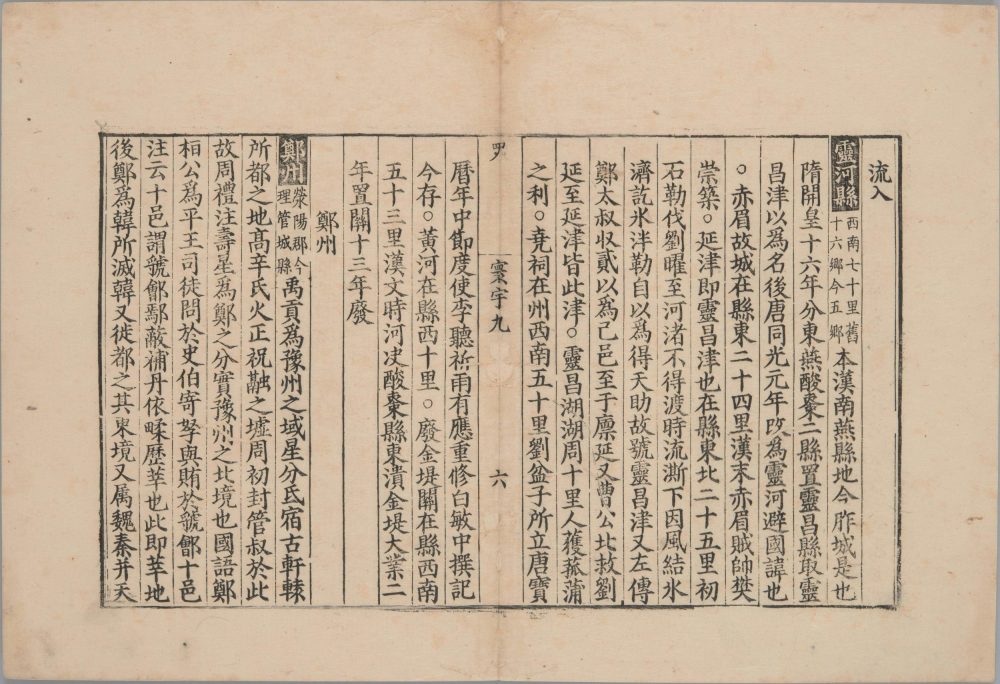 流入
靈河縣西南七十里舊十六鄉今五鄉本漢南燕縣地今胙城是也
隋開皇十六年分東燕酸棗二縣置靈昌縣取靈
昌津以為名後唐同光元年改為靈河避國諱也
○赤眉故城在縣東二十四里漢末赤眉賊帥樊
崇築○延津即靈昌津也在縣東北二十五里初
石勒伐劉曜至河渚不得渡時流澌下因風結氷
濟訖氷泮勒自以為得天助故號靈昌津又左傳
鄭太叔収貳以為己邑至于廪延又曹公北救劉
延至延津皆此津○靈昌湖湖周十里人獲菰蒲
之利○尭祠在州西南五十里劉盆子所立唐寶
寰宇九
六
曆年中節度使李聽祈雨有應重修白敏中撰記
今存○黃河在縣西十里○廢金堤關在縣西南
五十三里漢文時河决酸棗縣東潰金堤大業二
年置關十三年廢
鄭州
鄭州滎陽郡今理管城縣禹貢為豫州之域星分氐宿古軒轅
所都之地髙辛氏火正祝融之墟周初封管叔於此
故周禮注壽星為鄭之分實豫州之北境也國語鄭
桓公為平王司徒問於史伯寄孥與賄於虢鄶十邑
注云十邑謂虢鄶鄢蔽補丹依㽥歷莘也此即莘地
後鄭為韓所滅韓又徙都之其東境又属魏秦并天